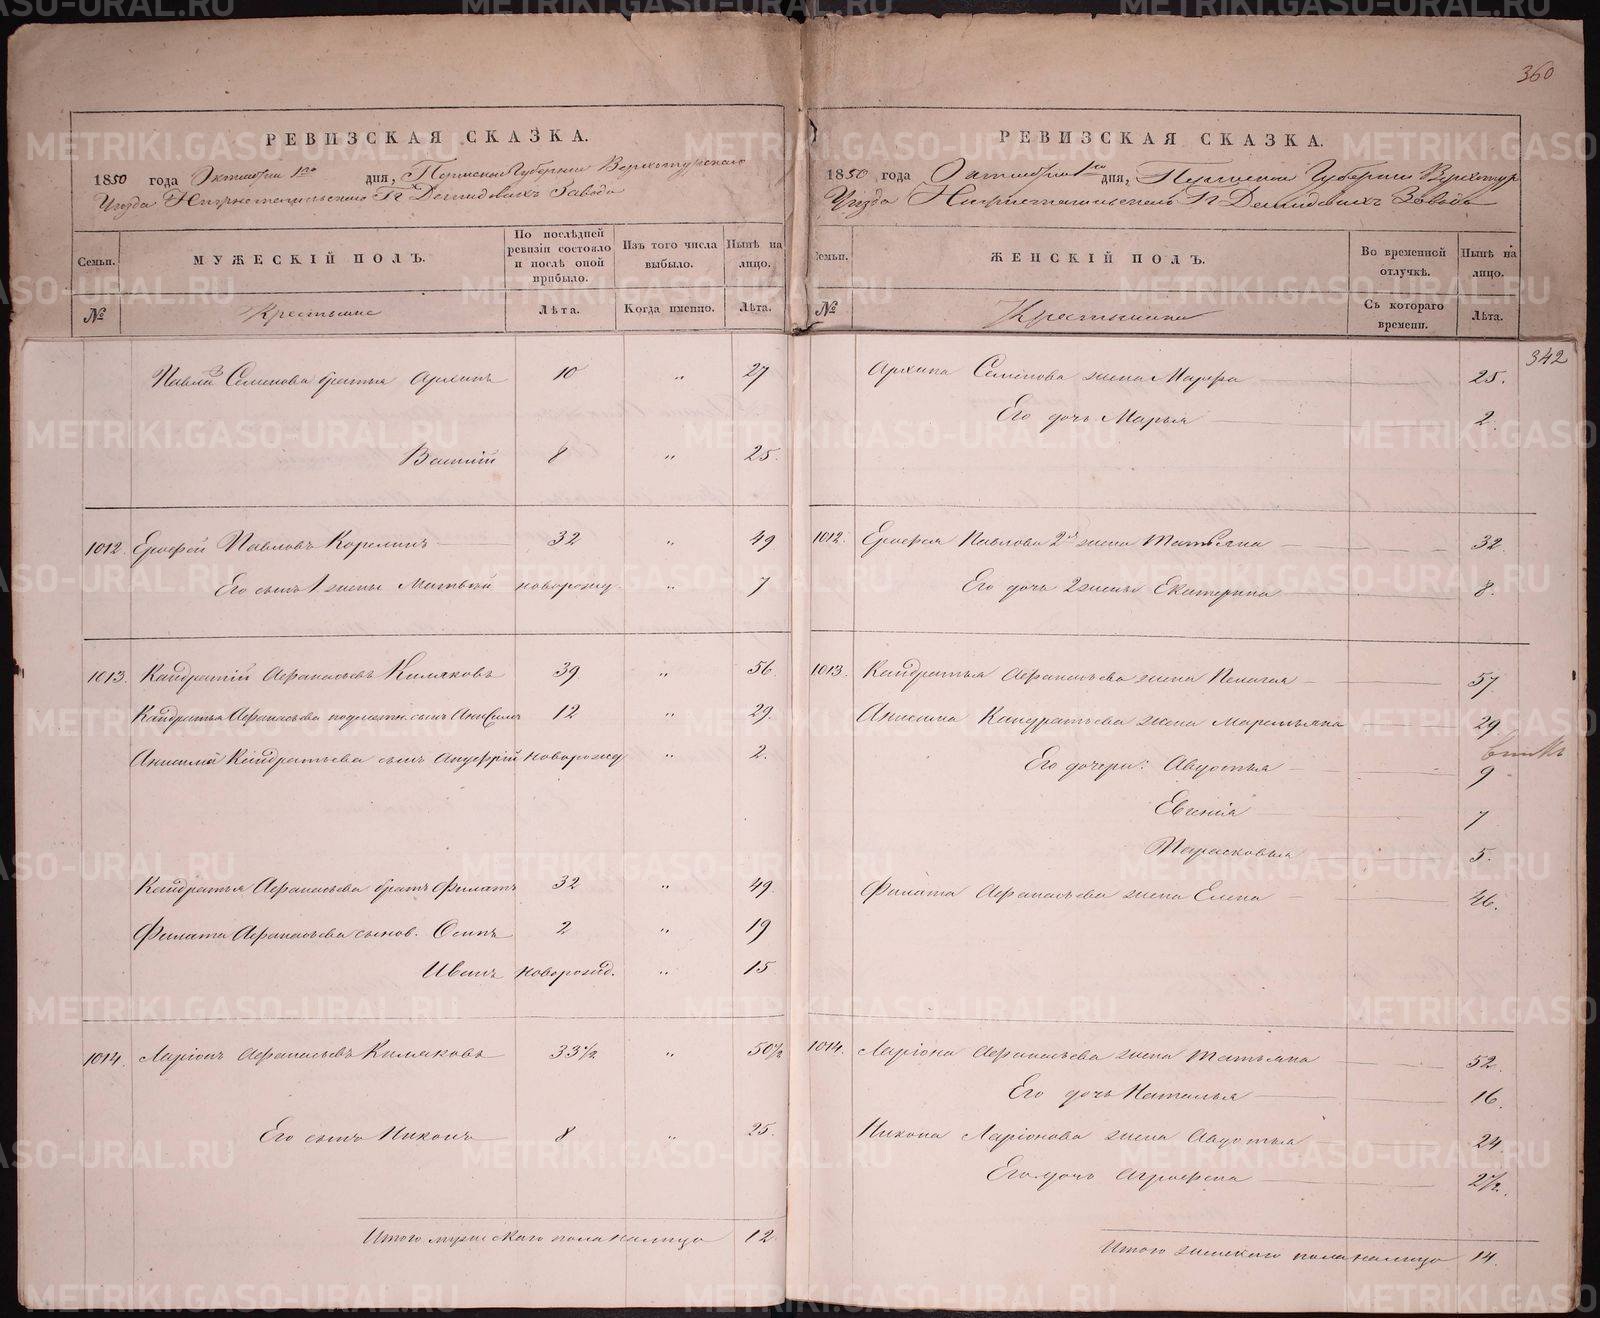 360
РЕВИЗСКАЯ СКАЗКА.
1850 года Октября 1го дня, Пермской Губернии Верхотурскаго
Уезда Нижнетагильскаго Гг Демидовыхъ Завода
Семьи.
МУЖЕСКІЙ ПОЛЪ.
По послѣдней ревизіи состояло и послѣ оной прибыло.
Изъ того числа выбыло.
Нынѣ на лицо.
№
Крестьяне
Лѣта.
Когда именно.
Лѣта.
Павла Семенова братья Архипъ 10 " 27
Василій 8 " 25.
1012. Ерофей Павловъ Корелинъ 32 " 49
Его сынъ 1 жены Матвѣй новорожд. " 7
1013. Кандратій Афанасьевъ Киляковъ 39 " 56
Кандратья Афанасьева сынъ Анисимъ 12 " 29.
Анисима Кандратьева сынъ Ануфрій новорожд " 2.
Кандратья Афанасьева братъ Филатъ 32 " 49.
Филата Афанасьева сынов. Осипъ 2 " 19
Иванъ новорожд. " 15
1014. Ларіонъ Афанасьевъ Килаковъ 33½ " 50½
Его сынъ Никонъ 8 " 25.
Итого мужескаго пола налицо 12
РЕВИЗСКАЯ СКАЗКА.
1850 года Октября 1го дня, Пермской Губерніи Верхотур
Уезда Нижнетагильскаго Гг Демидовыхъ Заводъ
Семьи.
ЖЕНСКІЙ ПОЛЪ.
Во временной отлучкѣ.
Нынѣ на лицо.
№
Крестьянки
Съ котораго времени.
Лѣта.
342
Архипа Семенова жена Марфа 25.
Его дочь Марья 2.
1012. Ерофея Павлова 2я жена Татьяна 32.
Его дочь 2 жены Екатерина 8.
1013. Кандратья Афанасьева жена Пелагея 57
Анисима Кандратьева жена Маремьяна 29.
Его дочери: Авдотья 9
Евгенія 7
Парасковья 5.
Филата Афанасьева жена Елена 46.
1014. Ларіона Афанасьева жена Татьяна 52.
Его дочь Наталья 16.
Никона Ларіонова жена Авдотья 24.
Его дочь Аграфена 2½.
Итого женскаго пола налицо 14.
METRIKI.GASO-URAL.RU